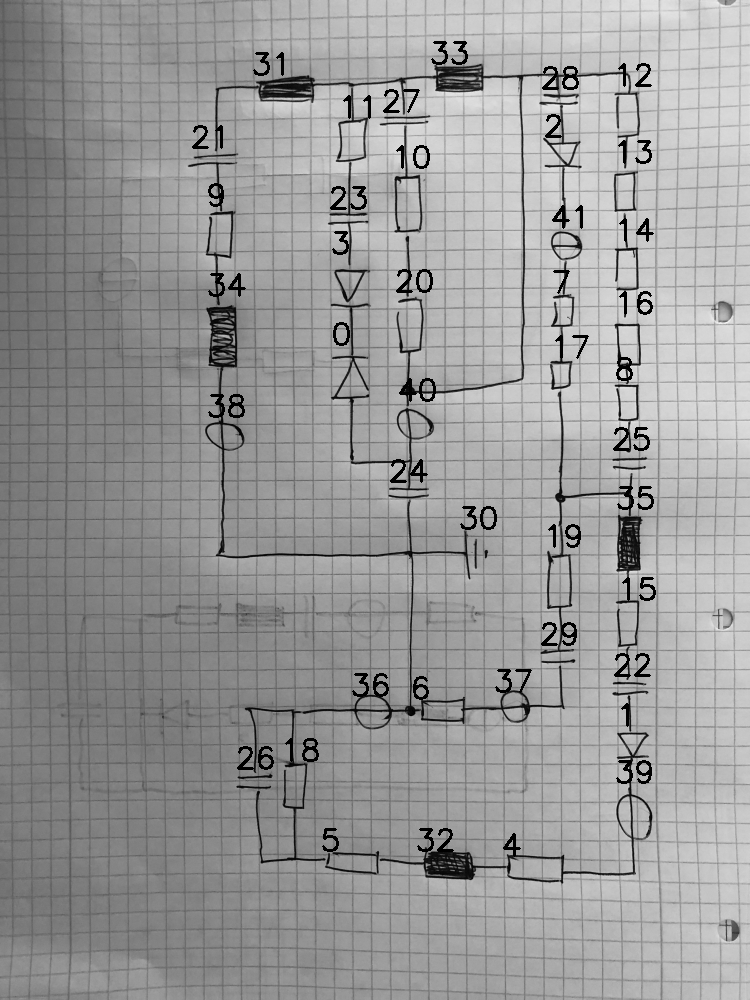 31 33 28 12
11 27
21 2 13
10
9 23 41 14
3
34 20 7 16
0 17 8
38 40 25
24 35
30 19 15
29 22
36 6 37 1
26 18 39
5 32 4